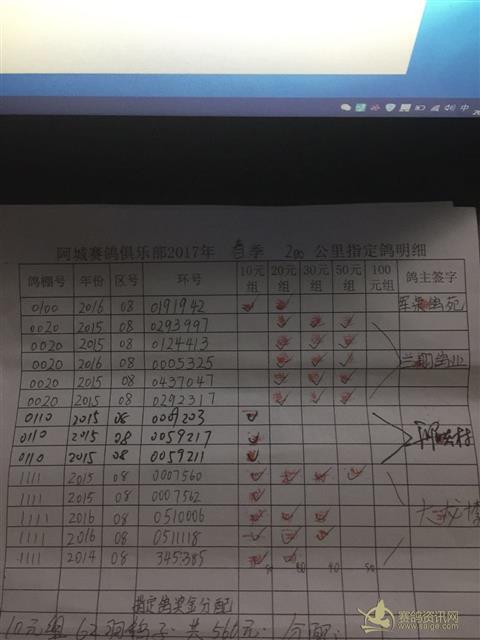 中
阿城赛鸽俱乐部2017年 春季 200 公里指定鸽明细
鸽棚号 年份 区号 环号 10元组 20元组 30元组 50元组 100元组 鸽主签字
0100 2016 08 0191942 ✓ ✓
0020 2015 08 0293997 ✓ ✓ ✓
0020 2015 08 0124413 ✓ ✓ ✓
0020 2016 08 0005325 ✓ ✓ ✓
0020 2015 08 0437047 ✓ ✓ ✓
0020 2015 08 0292317 ✓ ✓ ✓
0110 2015 08 0089203 ✓
0110 2015 08 0059217 ✓
0110 2015 08 0059211 ✓
1111 2015 08 0007560 ✓ ✓ ✓ ✓
1111 2015 08 0007562 ✓
1111 2016 08 0510006 ✓ ✓ ✓
1111 2016 08 0511118 ✓ ✓ ✓
1111 2014 08 345385 ✓ ✓
指定鸽奖金分配
10元组 62羽鸽子 共 560元
赛鸽资讯网
www.saige.com